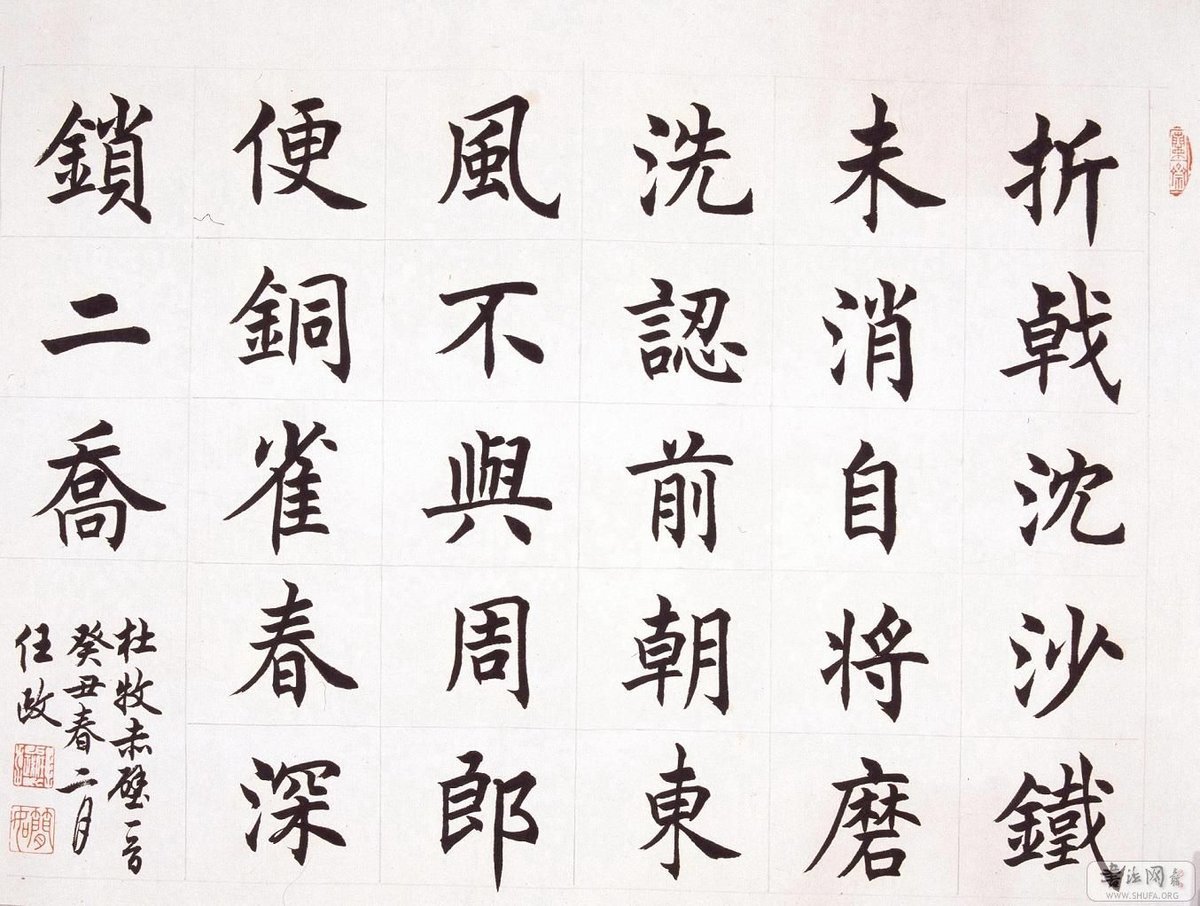 折戟沈沙鐵
未消自將磨
洗認前朝東
風不與周郎
便銅雀春深
鎖二喬
杜牧赤壁一首
癸丑春二月
任政
書法网
WWW.SHUFA.ORG